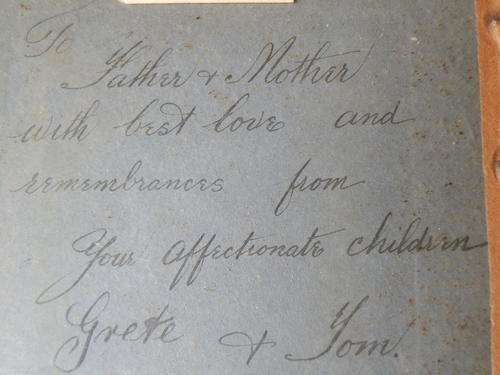 To
Father & Mother
with best love and
remembrances from
Your affectionate children
Grete & Tom.